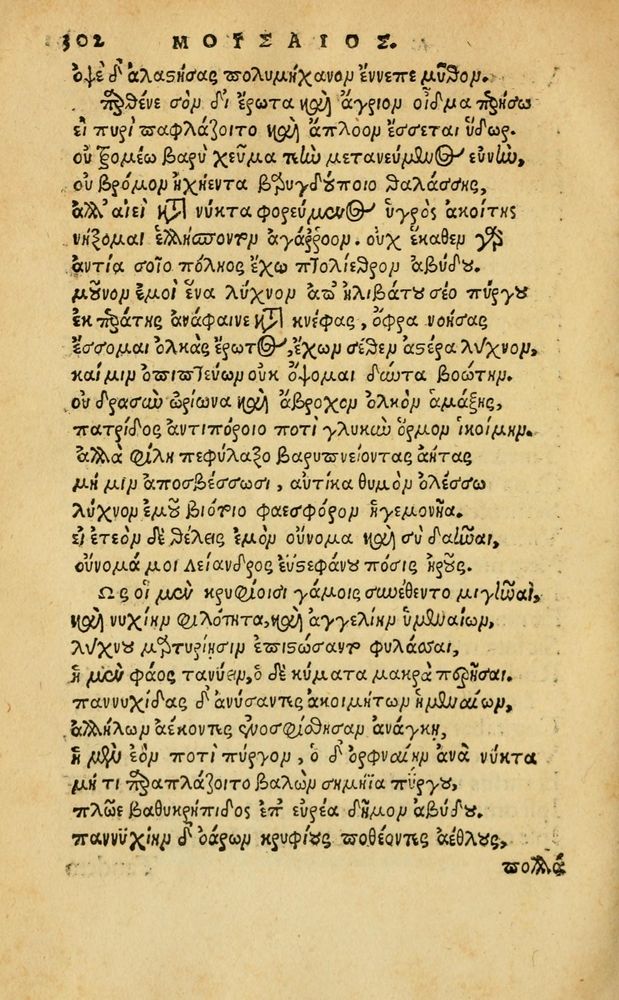 302 ΜΟΥΣΑΙΟΣ.
ὀψὲ δ' ἀλαστήσας πολυμήχανον ἔννεπε μῦθον.
Παρθένε σὸν δι' ἔρωτα καὶ ἄγριον οἶδμα περήσω
εἰ πυρὶ παφλάζοιτο καὶ ἄπλοον ἔσσεται ὕδωρ.
οὐ τρομέω βαρὺ χεῦμα τεὴν μετανεύμενος εὐνὴν,
οὐ βρόμον ἠχήεντα βαρυγδούποιο θαλάσσης,
ἀλλ' αἰεὶ κατὰ νύκτα φορεύμενος ὑγρὸς ἀκοίτης
νήξομαι ἑλλήσποντον ἀγάρροον. οὐχ ἕκαθεν γὰρ
ἀντία σοῖο πόληος ἔχω πτολίεθρον ἀβύδου.
μοῦνον ἐμοὶ ἕνα λύχνον ἀπ' ἠλιβάτου σέο πύργου
ἐκ περάτης ἀνάφαινε κατὰ κνέφας, ὄφρα νοήσας
ἔσσομαι ὁλκὰς ἔρωτος, ἔχων σέθεν ἀστέρα λύχνον,
καί μιν ὀπιπτεύων οὐκ ὄψομαι δύωτα βοώτην.
οὐ θρασὺν ὠρίωνα καὶ ἄβροχον ὁλκὸν ἁμάξης,
πατρίδος ἀντιπόροιο ποτὶ γλυκὺν ὅρμον ἱκοίμην.
ἀλλὰ φίλη πεφύλαξο βαρυπνείοντας ἀήτας
μή μιν ἀποσβέσσωσι, αὐτίκα θυμὸν ὀλέσσω
λύχνον ἐμοῦ βιότοιο φαεσφόρον ἡγεμονῆα.
εἰ ἐτεὸν δὲ θέλεις ἐμὸν οὔνομα καὶ σὺ δαῆναι,
οὔνομά μοι Λείανδρος ἐϋστεφάνου πόσις ἡροῦς.
Ὣς οἱ μὲν κρυφίοισι γάμοις συνέθεντο μιγῆναι,
καὶ νυχίην φιλότητα, καὶ ἀγγελίην ὑμεναίων,
λύχνου μαρτυρίῃσιν ἐπιστώσαντο φυλάσσαι,
ἡ μὲν φάος τανύειν, ὁ δὲ κύματα μακρὰ περῆσαι.
παννυχίδας δ' ἀνύσαντες ἀκοιμήτων ὑμεναίων,
ἀλλήλων ἀέκοντες ἐνοσφίσθησαν ἀνάγκῃ,
ἡ μὲν ἑὸν ποτὶ πύργον, ὁ δ' ὀρφναίην ἀνὰ νύκτα
μή τι παραπλάζοιτο βαλὼν σημήϊα πύργου,
πλῶε βαθυκρήπιδος ἐπ' εὐρέα δῆμον ἀβύδου.
παννύχιην δ' ὀάρων κρυφίους ποθέοντες ἀέθλους,
πολλά